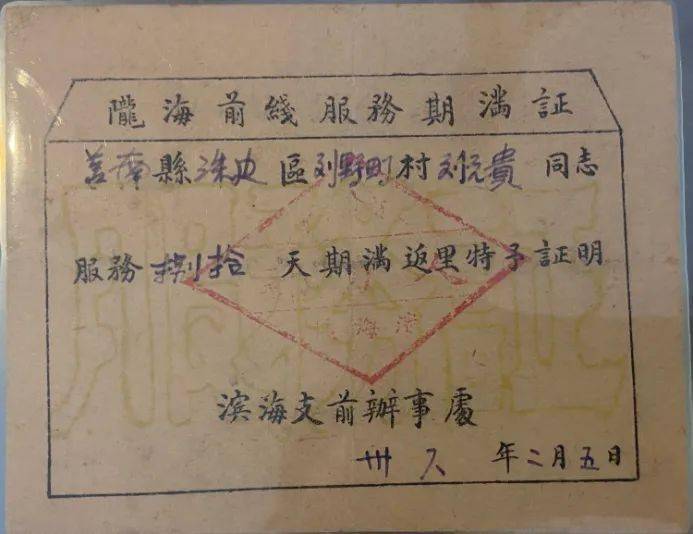 隴海前綫服務期滿証
莒南縣洙边區刘野町村刘貴同志
服務捌拾天期滿返里特予証明
滨海支前辦事處
卅年二月五日